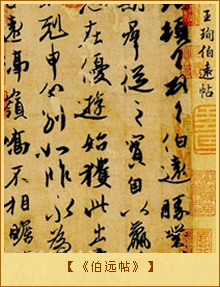 王珣伯遠帖
頓首頓首伯遠勝業
期群從之寶自以羸
志在優遊始獲此出
剋申分別如昨永為
遠隔嶺嶠不相瞻
【《伯远帖》】